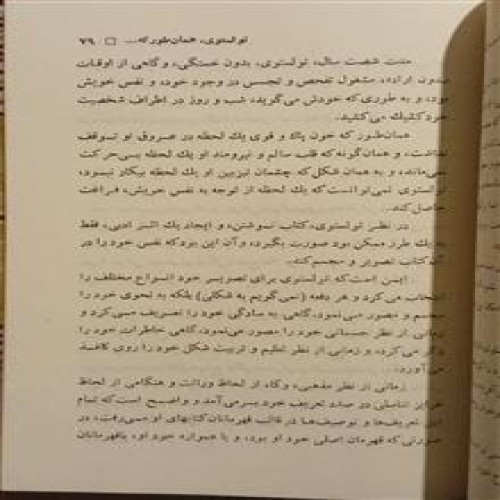 تولستوی، همان‌طور که... □ ۷۹
مدت شصت سال، تولستوی، بدون خستگی، و گاهی از اوقات
بدون اراده، مشغول تفحص و تجسس در وجود خود، و نفس خویش
بود، و به طوری که خودش می‌گوید، شب و روز در اطراف شخصیت
خود کشیك می‌کشید.
همان‌طور که خون پاك و قوی یك لحظه در عروق او توقف
نداشت، و همان‌گونه که قلب سالم و نیرومند او یك لحظه بی‌حرکت
نمی‌ماند، و به همان شکل که چشمان تیزبین او یك لحظه بیکار نبود،
تولستوی نمی‌توانست که یك لحظه از توجه به نفس خویش، فراغت
حاصل کند.
در نظر تولستوی، کتاب نوشتن، و ایجاد یك اثر ادبی، فقط
به یك طرز ممکن بود صورت بگیرد، و آن این بود که نفس خود را در
آن کتاب تصویر و مجسم کند.
این است که تولستوی برای تصویر خود انواع مختلف را
انتخاب می‌کرد و هر دفعه (نمی‌گویم به شکلی) بلکه به نحوی خود را
مجسم و مصور می‌نمود، گاهی به سادگی خود را تعریف می‌کرد و
زمانی از نظر جسمانی خود را مصور می‌نمود، گاهی خاطرات خود را
ذکر می‌کرد، و زمانی از نظر تعلیم و تربیت شکل خود را روی کاغذ
می‌آورد.
زمانی از نظر مذهبی، و گاه از لحاظ وراثت و هنگامی از لحاظ
تناسلی در صدد تعریف خود برمی‌آمد و واضح است که تمام
این تعریف‌ها و توصیف‌ها در قالب قهرمانان کتابهای او می‌رفت، در
صورتی که قهرمان اصلی خود او بود، و یا همواره خود او، با قهرمانان